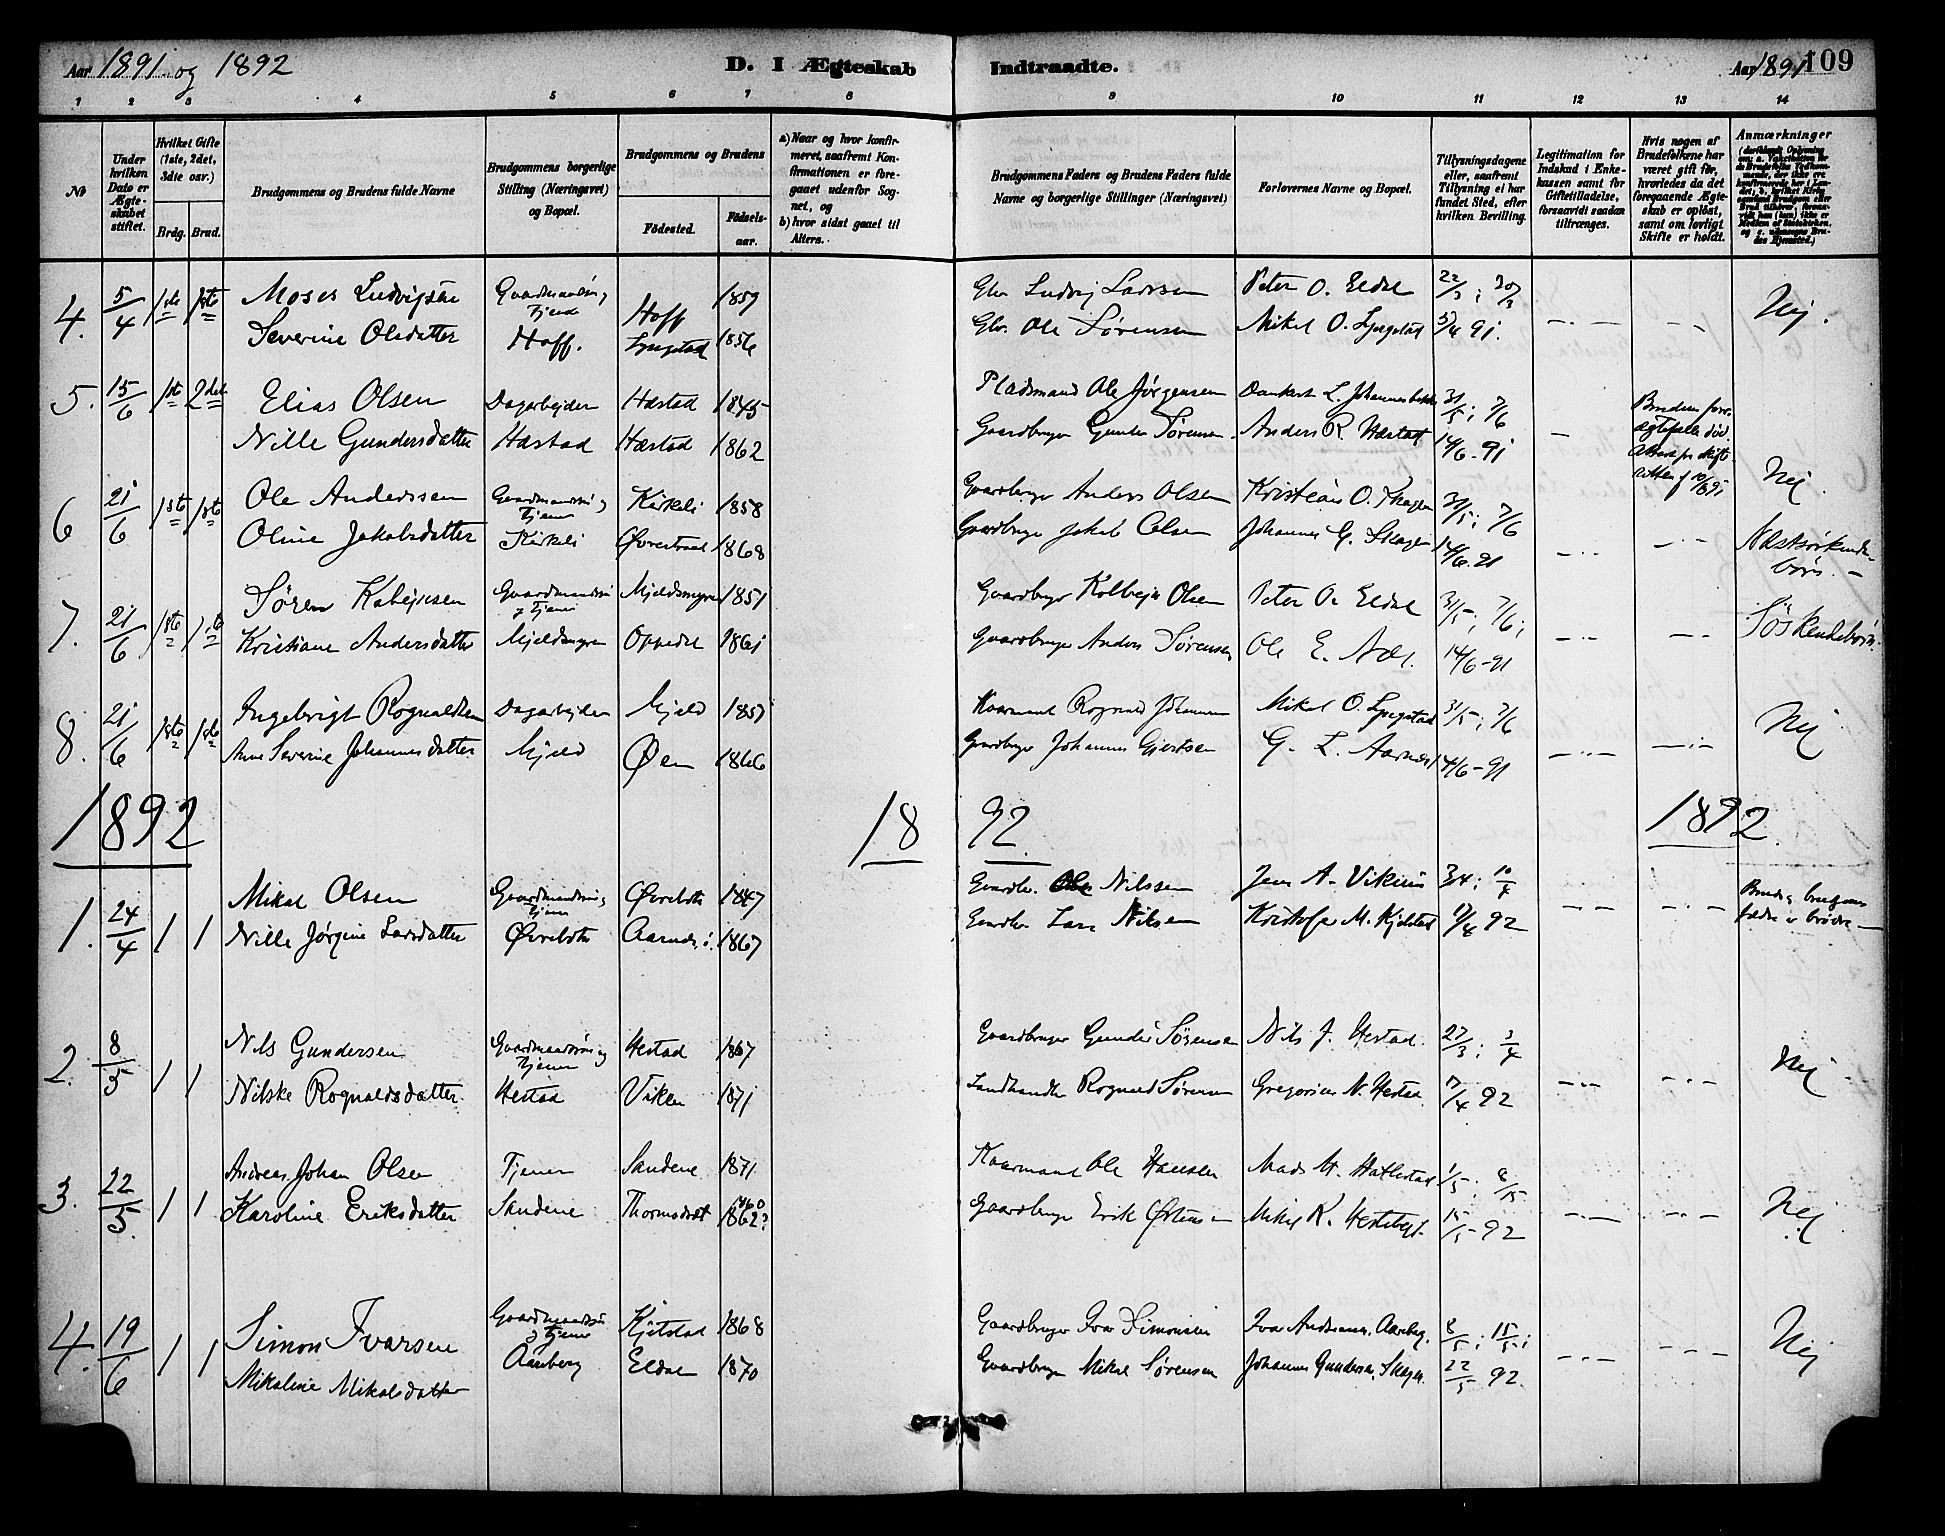 Aar 1891 og 1892
D. I Ægteskab Indtraadte.
Aar 1891
109
1 2 3 4 5 6 7 8 9 10 11 12 13 14
№
Under hvilken Dato er Ægteskabet stiftet.
Hvilket Gifte (1ste, 2det, 3die osv.)
Brdg. Brud.
Brudgommens og Brudens fulde Navne
Brudgommens borgerlige Stilling (Næringsvei) og Bopæl.
Brudgommens og Brudens
Fødested.
Fødselsaar.
a) Naar og hvor konfirmeret, saafremt Konfirmationen er foregaaet udenfor Sognet, og
b) hvor sidst gaaet til Alters.
Brudgommens Faders og Brudens Faders fulde Navne og borgerlige Stillinger (Næringsvei)
Forlovernes Navne og Bopæl.
Tillysningsdagene eller, saafremt Tillysning ei har fundet Sted, efter hvilken Bevilling.
Legitimation for Indskud i Enkekassen samt for Giftetilladelse, forsaavidt saadan tiltrænges.
Hvis nogen af Brudefolkene har været gift før, hvorledes da det foregaaende Ægteskab er opløst, samt om lovligt Skifte er holdt.
Anmærkninger
4. 5/4 1ste 1ste Moses Ludvigsen Gaardmandssøn og Tjener Hoff 1859 Gbr. Ludvig Larsen Peter O. Eldal 22/3; 30/3 Nej.
Severine Olsdatter Hoff. Lyngstad 1856 Gbr. Ole Sørensen Mikel O. Lyngstad 5/4 91.
5. 15/6 1ste 2det Elias Olsen Dagarbejder Hæstad 1845 Pladsmand Ole Jørgensen Dankert L. 31/5; 7/6 Brudens
Nille Gundersdatter Hæstad Hæstad 1862 Gaardbruger Gunder Sørensen Anders R. Hæstad 14/6-91 Nej
6 21/6 1ste 1ste Ole Anderssen Gaardmandssøn og Tjener Kirkeli 1858 Gaardbruger Anders Olsen Kristian O. Skagen 31/5; 7/6
Oline Jakobsdatter Kirkeli Øvrestrand 1868 Gaardbruger Jakob Olsen Johannes G. Skagen 14/6-91 Næstsøskendebørn. -
7. 21/6 1ste 1ste Søren Kolbejnsen Gaardmandssøn og Tjener Mjeldsmyren 1851 Gaardbruger Kolbejn Olsen Peter O. Eldal 31/5; 7/6; Søskendebørn.
Kristiane Andersdatter Mjeldsmyren Oppedal 1861 Gaardbruger Anders Sørensen Ole E. 14/6-91
8. 21/6 1ste 1ste Ingebrigt Rognaldsen Dagarbejder Mjeld 1857 Kaarmand Rognald Johannesen Mikel O. Lyngstad 31/5; 7/6 Nej
Anne Severine Johannesdatter Mjeld Øen 1866 Gaardbruger Johannes Gjertsen G. L. Aarnes 14/6-91
1892 1892 1892
1. 24/4 1 1 Mikal Olsen Gaardmandssøn og Tjener Øvrebotn 1847 Gaardbr. Ole Nilssen Jens A. Viken 3/4; 10/4
Nille Jørgine Larsdatter Øvrebotn Aarnes i. 1867 Gaardbr. Lars Nilsen Kristofer M. Kjelstad 17/4 92
2. 8/5 1 1 Nils Gundersen Gaardmandssøn og Tjener Hestad 1867 Gaardbruger Gunder Sørensen Nils J. Hestad 27/3; 3/4 Nej
Nilske Rognaldsdatter Hestad Viken 1871 Landhandler Rognald Sørensen Gregorius N. Hestad /4 92
3. 22/5 1 1 Andreas Johan Olsen Tjener Sandene 1871 Kaarmand Ole Hansen Mads M. Hatlestad 1/5; 8/5 Nej
Karoline Eriksdatter Sandene 1862? Gaardbruger Erik Mikel R. Hestebeyt. 15/5-92
4. 19/6 1 1 Simon Ivarsen Gaardmandssøn og Tjener Kjelstad 1868 Gaardbruger Ivar Simonsen Ivar Andersen, Aarberg. 8/5; 15/5; Nej
Mikaline Mikalsdatter Aarberg Eldal 1870 Gaardbruger Mikal Sørensen Johannes Gundersen, Skagen. 22/5 92.